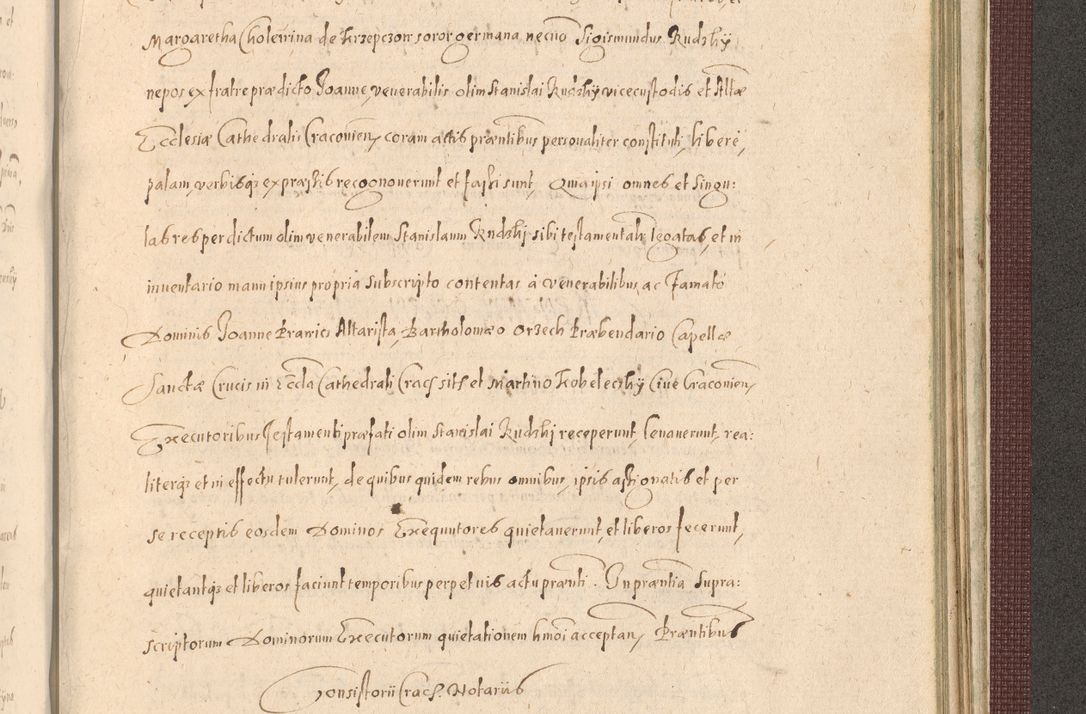 Margaretha Cholewina de Krzepczon soror germana necno Sigismundus Rudzky
nepos ex fratre prædicto Joanne, venerabilis olim Stanislai Rudzky vicecustodis et Altæ
Ecclesiæ Cathedralis Cracovien, coram actis præntibus personaliter constituti, liberè,
palam, verbisqz expræssis recognoverunt et fassi sunt, Quia ipsi omnes et Singu:
las res per dictum olim venerabilem Stanislaum Rudzkj sibi testamentalr legatas, et in
inventario manu ipsius propria Subscripto contentas à venerabilibus, ac Famato
Dominis Joanne Altarista, Bartholomæo Orzech Præbendario Capellæ
Sanctæ Crucis in Eccla Cathedrali Cracf sits et Martino Kobeleczky Cive Cracovien,
Executoribus Testamenti præfati olim Stanislai Rudzkj receperunt, levaverunt, rea:
literqz et in effectu tulerunt, de quibus quidem rebus omnibus, ipsis assignatis et per
se receptis eosdem Dominos Exequutores quietaverunt, et liberos fecerunt,
quietantqz et liberos faciunt temporibus perpetuis actu prænti. In præntia Supra:
scriptorum Dominorum Executorum quietationem hmoi acceptan, Præntibus
Consistorii Cracf. Notariis